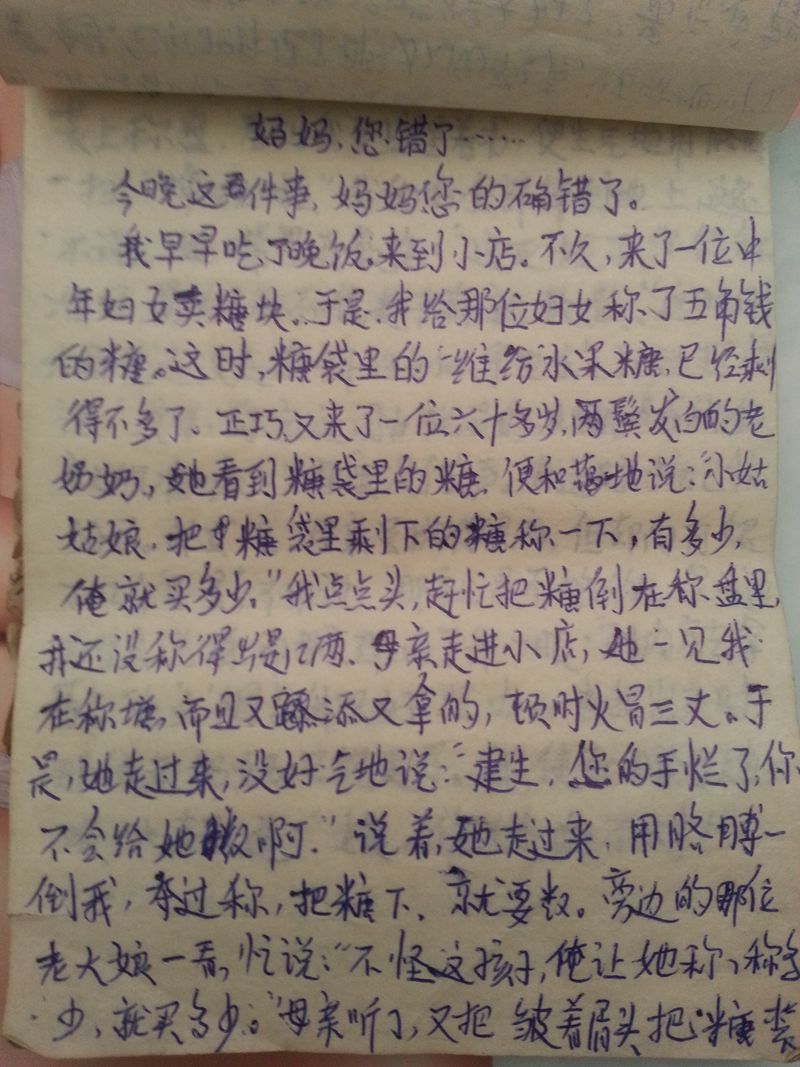 妈妈,您错了……
今晚这件事,妈妈您的确错了。
我早早吃了晚饭,来到小店。不久,来了一位中
年妇女卖糖块。于是,我给那位妇女称了五角钱
的糖。这时,糖袋里的“维纺”水果糖,已经剩
得不多了。正巧,又来了一位六十多岁,两鬓发白的老
奶奶,她看到糖袋里的糖,便和蔼地说:“小姑
姑娘,把糖袋里剩下的糖称一下,有多少,
俺就买多少。”我点点头,赶忙把糖倒在称盘里,
我还没称得出是几两、母亲走进小店,她一见我
在称糖,而且又添又拿的,顿时火冒三丈。于
是,她走过来,没好气地说:“建生,您的手烂了,你
不会给她数啊。”说着,她走过来,用胳膊一
倒我,夺过称,把糖下,就要数。旁边的那位
老大娘一看,忙说:“不怪这孩子,俺让她称,称多
少,就买多少。”母亲听了,又把皱着眉头把糖装